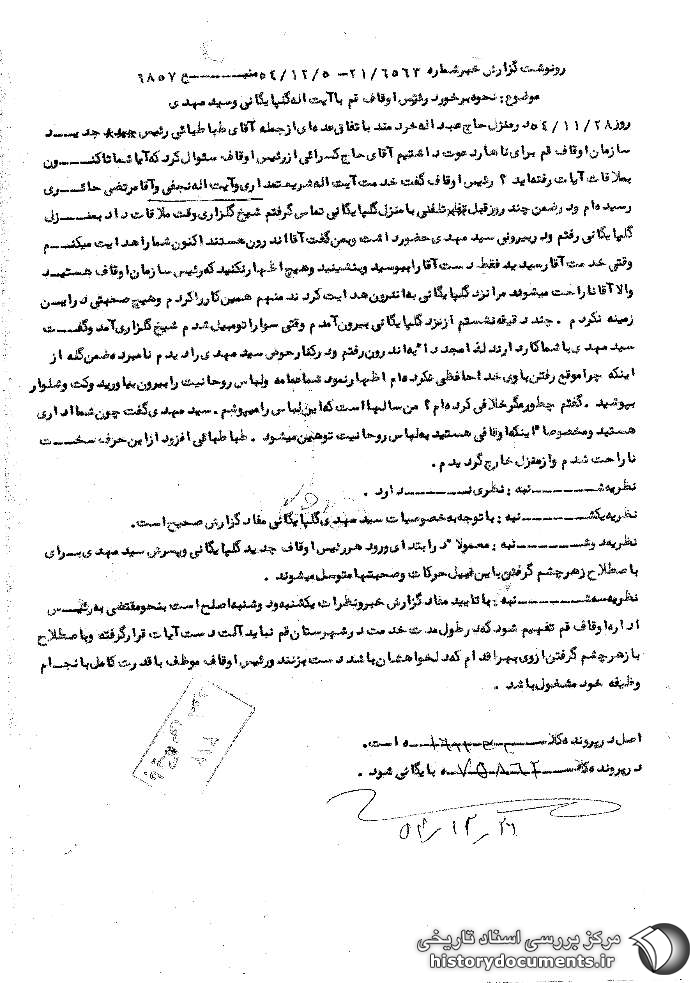 رونوشت گزارش خبر شماره ۲۱/۶۵۶۳ – ۵۴/۱۲/۵ منبـــــع ۶۸۵۷
موضوع : نحوه برخورد رئیس اوقاف قم با آیت اله گلپایگانی و سید مهدی
روز ۵۴/۱۱/۲۸ در منزل حاج عبد اله خرد مند با تفاق عده ای از جمله آقای طبا طبائی رئیس جدیـــــد
سازمان اوقاف قم برای ناهار دعوت داشتیم آقای حاج کسرائی از رئیس اوقاف سئوال کرد که آیا شما تاکنـــــون
بملاقات آیات رفته اید ؟ رئیس اوقاف گفت خدمت آیت اله شریعتمداری و آیت اله نجفی و آقا مرتضی حائـــــری
رسیده ام و در ضمن چند روز قبل تلفنی با منزل گلپایگانی تماس گرفتم شیخ گلزاری وقت ملاقات داد بمنـــــزل
گلپایگانی رفتم و در بیرونی سید مهدی حضور داشت و بمن گفت آقا اندرون هستند اکنون شما را هدایت میکنـــم
وقتی خدمت آقا رسیدید فقط دست آقا را ببوسید و بنشینید و هیچ اظهار نکنید که رئیس سازمان اوقاف هستیـــد
والا آقا ناراحت میشوند مرا نزد گلپایگانی به اندرون هدایت کردند منهم همین کار را کردم و هیچ صحبتی در ایـــن
زمینه نکردم . چند دقیقه نشستم از نزد گلپایگانی بیرون آمدم وقتی سوار اتومبیل شدم شیخ گلزاری آمد و گفـــت
سید مهدی با شما کار دارند لذا مجددا" به اندرون رفتم و در کنار حوض سید مهدی را دیدم نامبرده ضمن گله از
اینکه چرا موقع رفتن با وی خداحافظی نکرده ام اظهار نمود شما عمامه ولباس روحانیت را بیرون بیاورید وکت وشلوار
بپوشید . گفتم چطور مگر خلافی کرده ام ؟ من سالها است که این لباس را میپوشم . سید مهدی گفت چون شما اداری
هستید و مخصوصا" اینکه اوقافی هستید به لباس روحانیت توهین میشود . طبا طبائی افزود از این حرف سخـــــت
ناراحت شدم و از منزل خارج گردیدم .
نظریه شـــــنبه : نظری نـــــــدارد .
نظریه یکشـــــنبه : با توجه به خصوصیات سید مهدی گلپایگانی مفاد گزارش صحیح است .
نظریه دوشـــــنبه : معمولا" در ابتدای ورود هر رئیس اوقاف جدید گلپایگانی و پسرش سید مهدی بـــرای
باصطلاح زهر چشم گرفتن باین قبیل حرکات وصحبتها متوسل میشوند .
نظریه سه شـــــنبه : با تایید مفاد گزارش خبر و نظرات یکشنبه و دوشنبه اصلح است بنحو مقتضی به رئیـــس
اداره اوقاف قم تفهیم شود که در طول مدت خدمت در شهرستان قم نباید آلت دست آیات قرار گرفته و باصطلاح
با زهر چشم گرفتن از وی بهر اقدام که دلخواهشان باشد دست بزنند و رئیس اوقاف موظف با قدرت کامل با نجام
وظیفه خود مشغول باشد .
اصل در پرونده کلاسه است .
در پرونده کلاسه بایگانی شود .
۵۴/۱۲/۲۶
مرکز بررسی اسناد تاریخی
historydocuments.ir